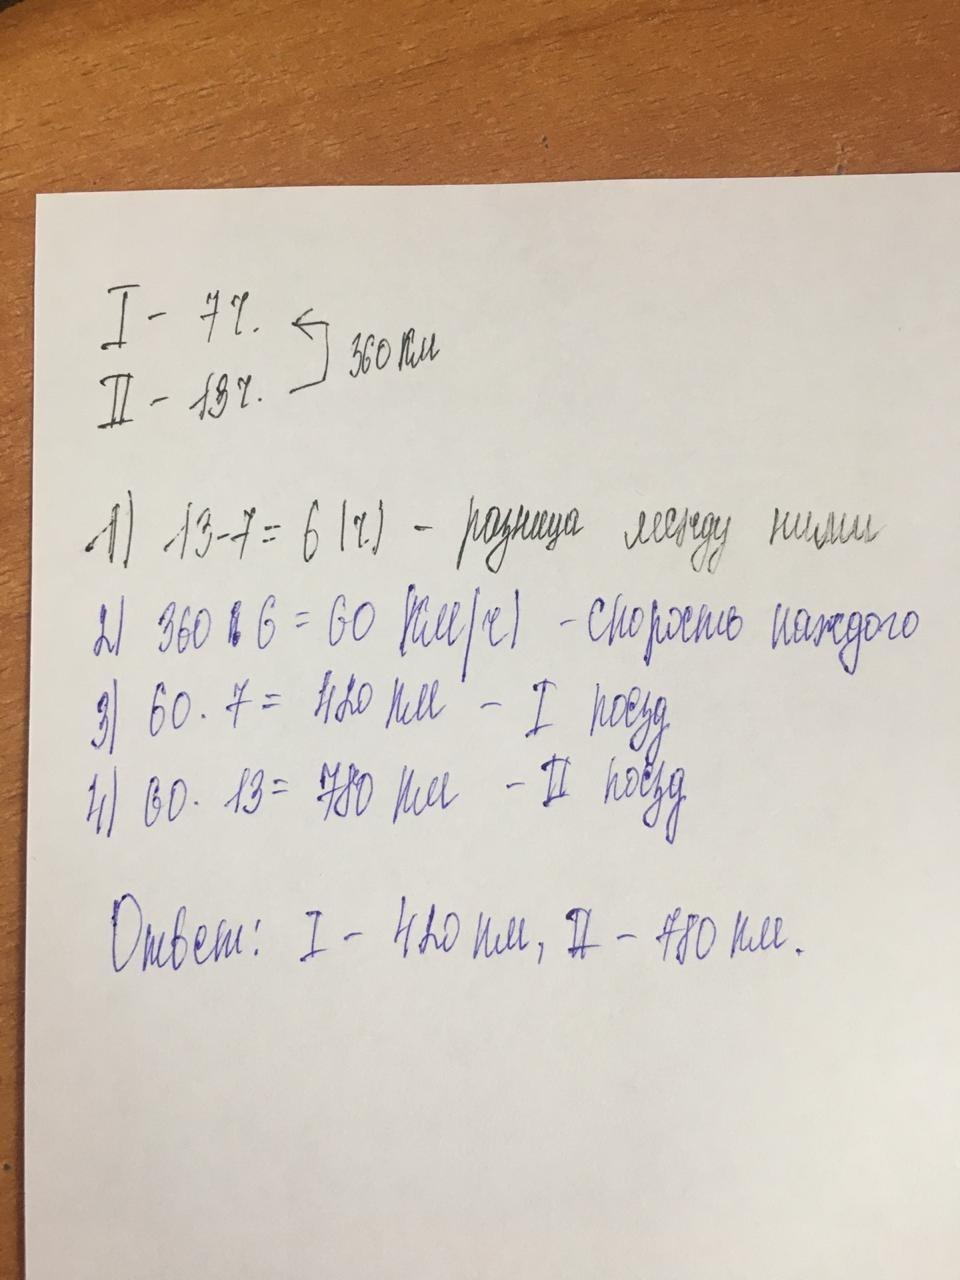 I - 7 ч.
360 км
II - 13 ч.
1) 13-7= 6 (ч) - разница между ними
2) 360 : 6 = 60 (км/ч) - скорость каждого
3) 60 · 7 = 420 км - I поезд
4) 60 · 13 = 780 км - II поезд
Ответ: I - 420 км, II - 780 км.